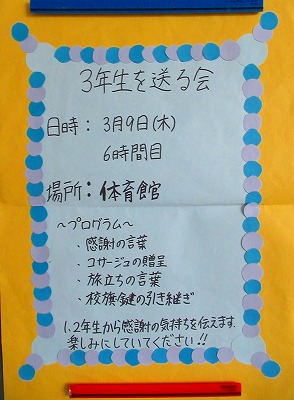 3年生を送る会
日時：3月9日(木)
6時間目
場所：体育館
～プログラム～
・感謝の言葉
・コサージュの贈呈
・旅立ちの言葉
・校旗鍵の引き継ぎ
1、2年生から感謝の気持ちを伝えます。
楽しみにしていてください!!